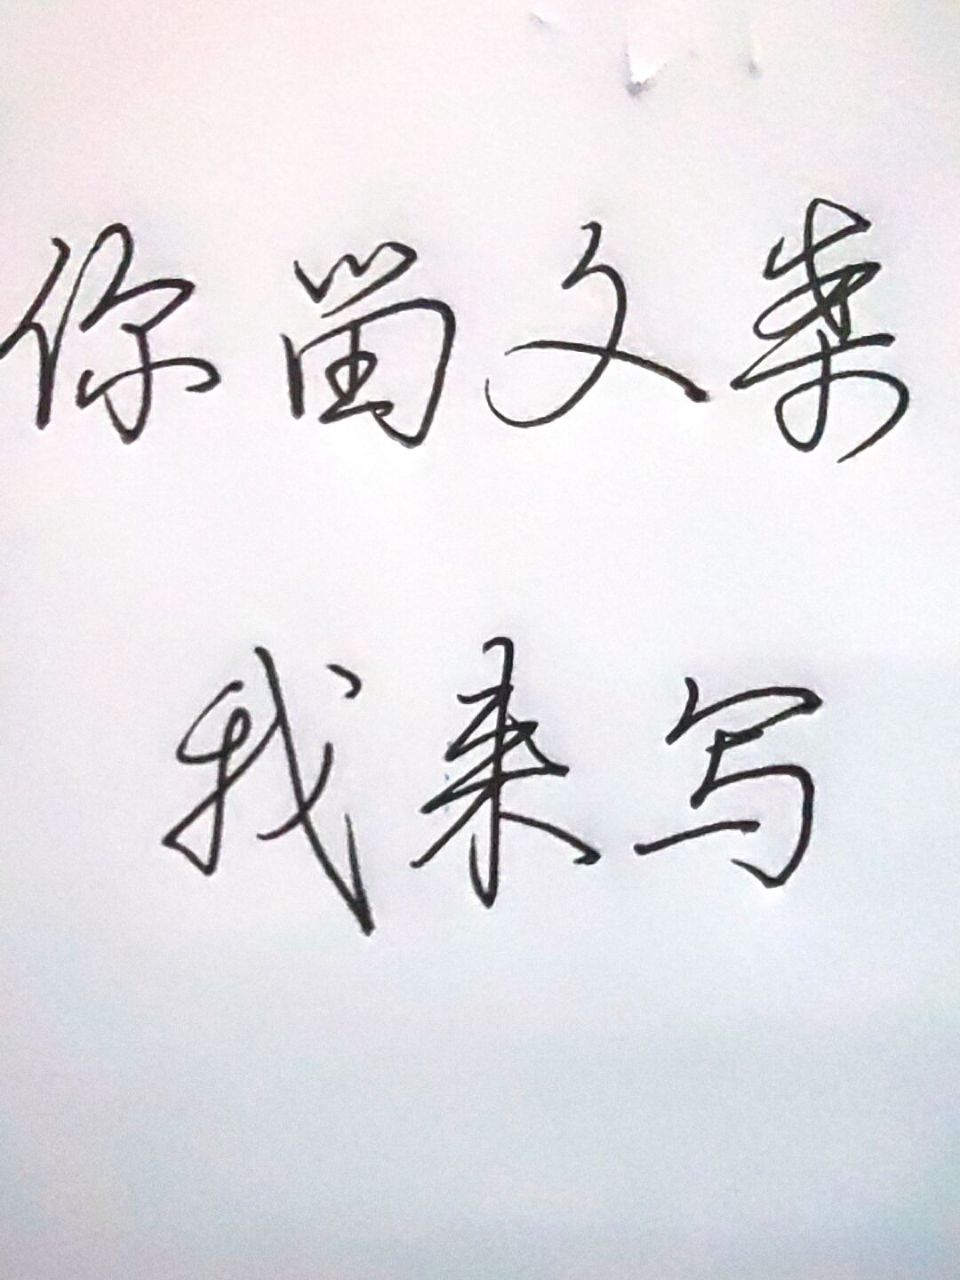 你留文案
我来写